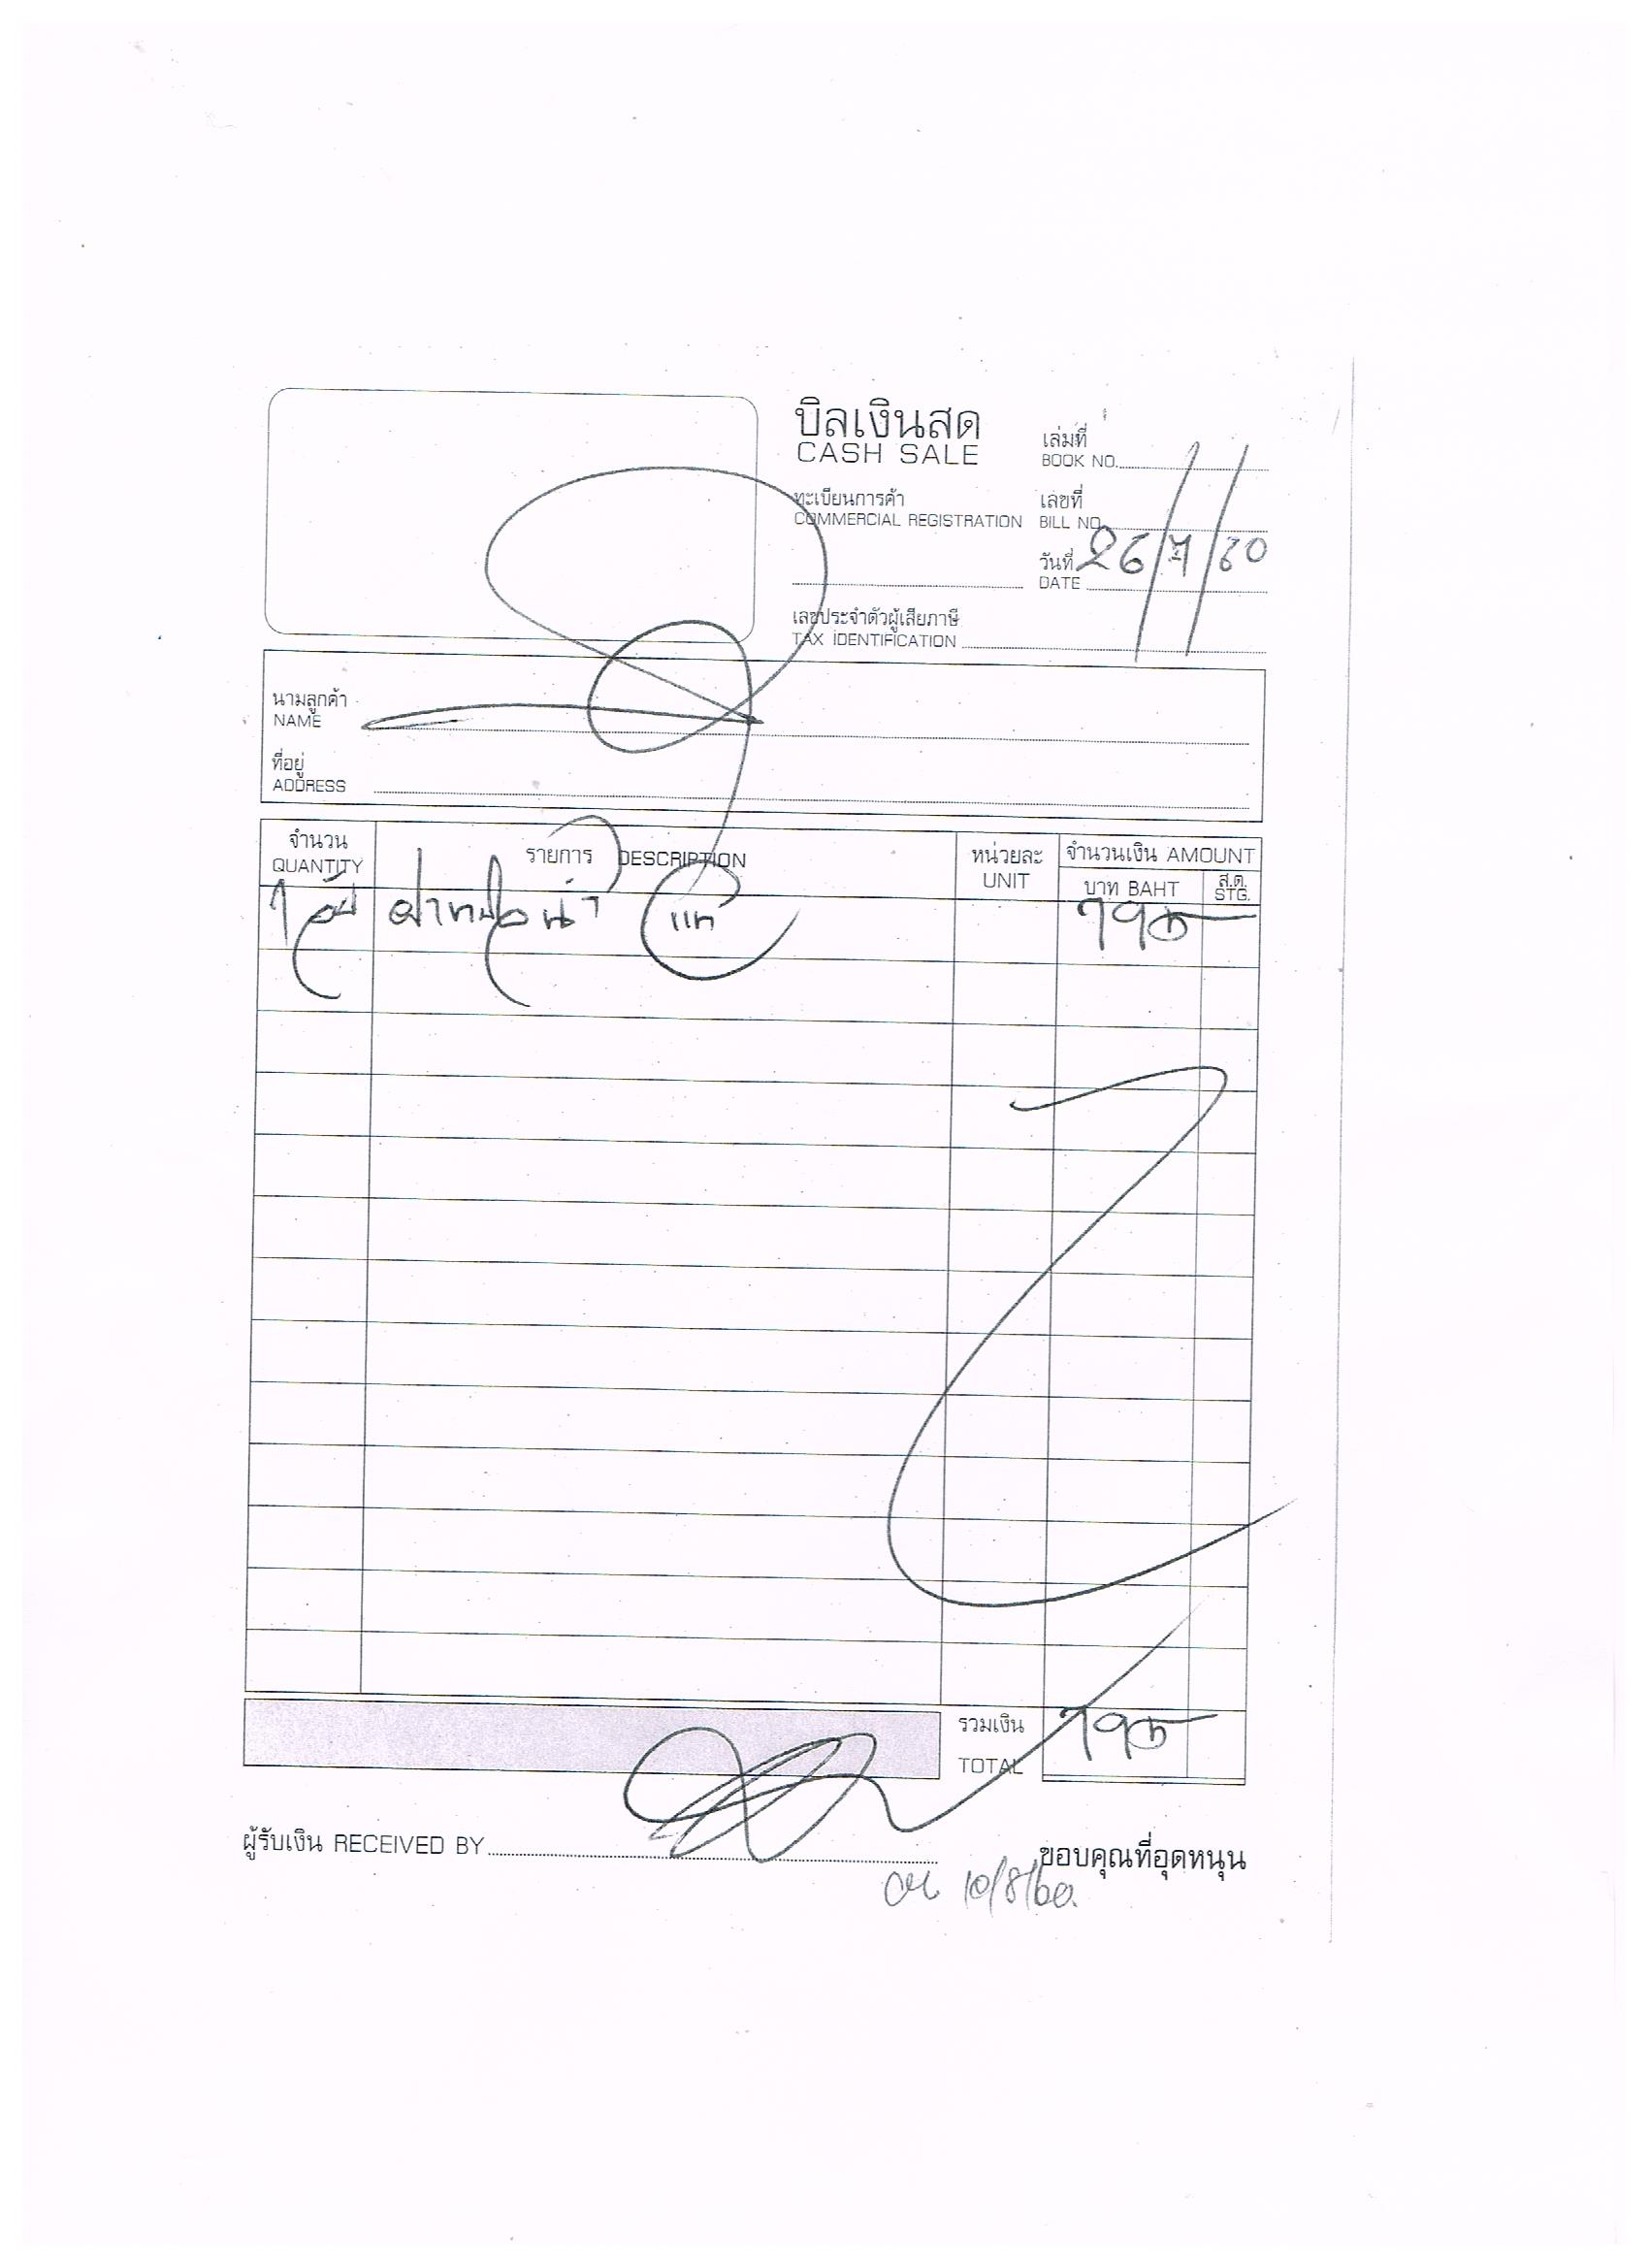 บิลเงินสด
CASH SALE
เล่มที่
BOOK NO.
ทะเบียนการค้า
COMMERCIAL REGISTRATION
เลขที่
BILL NO.
วันที่ 26/7/60
DATE
เลขประจำตัวผู้เสียภาษี
TAX IDENTIFICATION
นามลูกค้า
NAME
ที่อยู่
ADDRESS
จำนวน
QUANTITY
รายการ DESCRIPTION
หน่วยละ
UNIT
จำนวนเงิน AMOUNT
บาท BAHT
ส.ต.
STG.
1 ฝาหม้อน้ำ แท้ 795
รวมเงิน
TOTAL
795
ผู้รับเงิน RECEIVED BY
ขอบคุณที่อุดหนุน
10/8/60